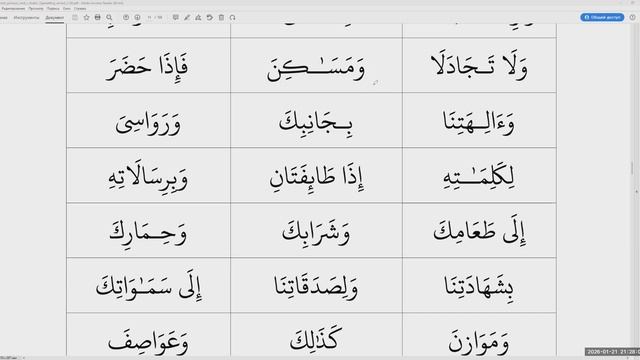 Редактирование Просмотр Подпись Окно Справка
Инструменты Документ
Общий доступ
وَلَا تَـجَادَلَا وَمَسَـٰـكِنَ فَإِذَا حَضَرَ
وَءَالِـهَتِنَا بِـجَانِبِكَ وَرَوَاسِىَ
لِكَلِمَـٰـتِهِ إِذَا طَائِفَتَانِ وَبِرِسَالَاتِهِ
إِلَى طَعَامِكَ وَشَرَابِكَ وَحِـمَارِكَ
بِشَهَادَتِنَا وَلِصَدَقَاتِنَا إِلَى سَمَـٰوَاتِكَ
وَمَوَازِنَ كَذَٰلِكَ وَعَوَاصِفَ
2026-01-21 21:28:0